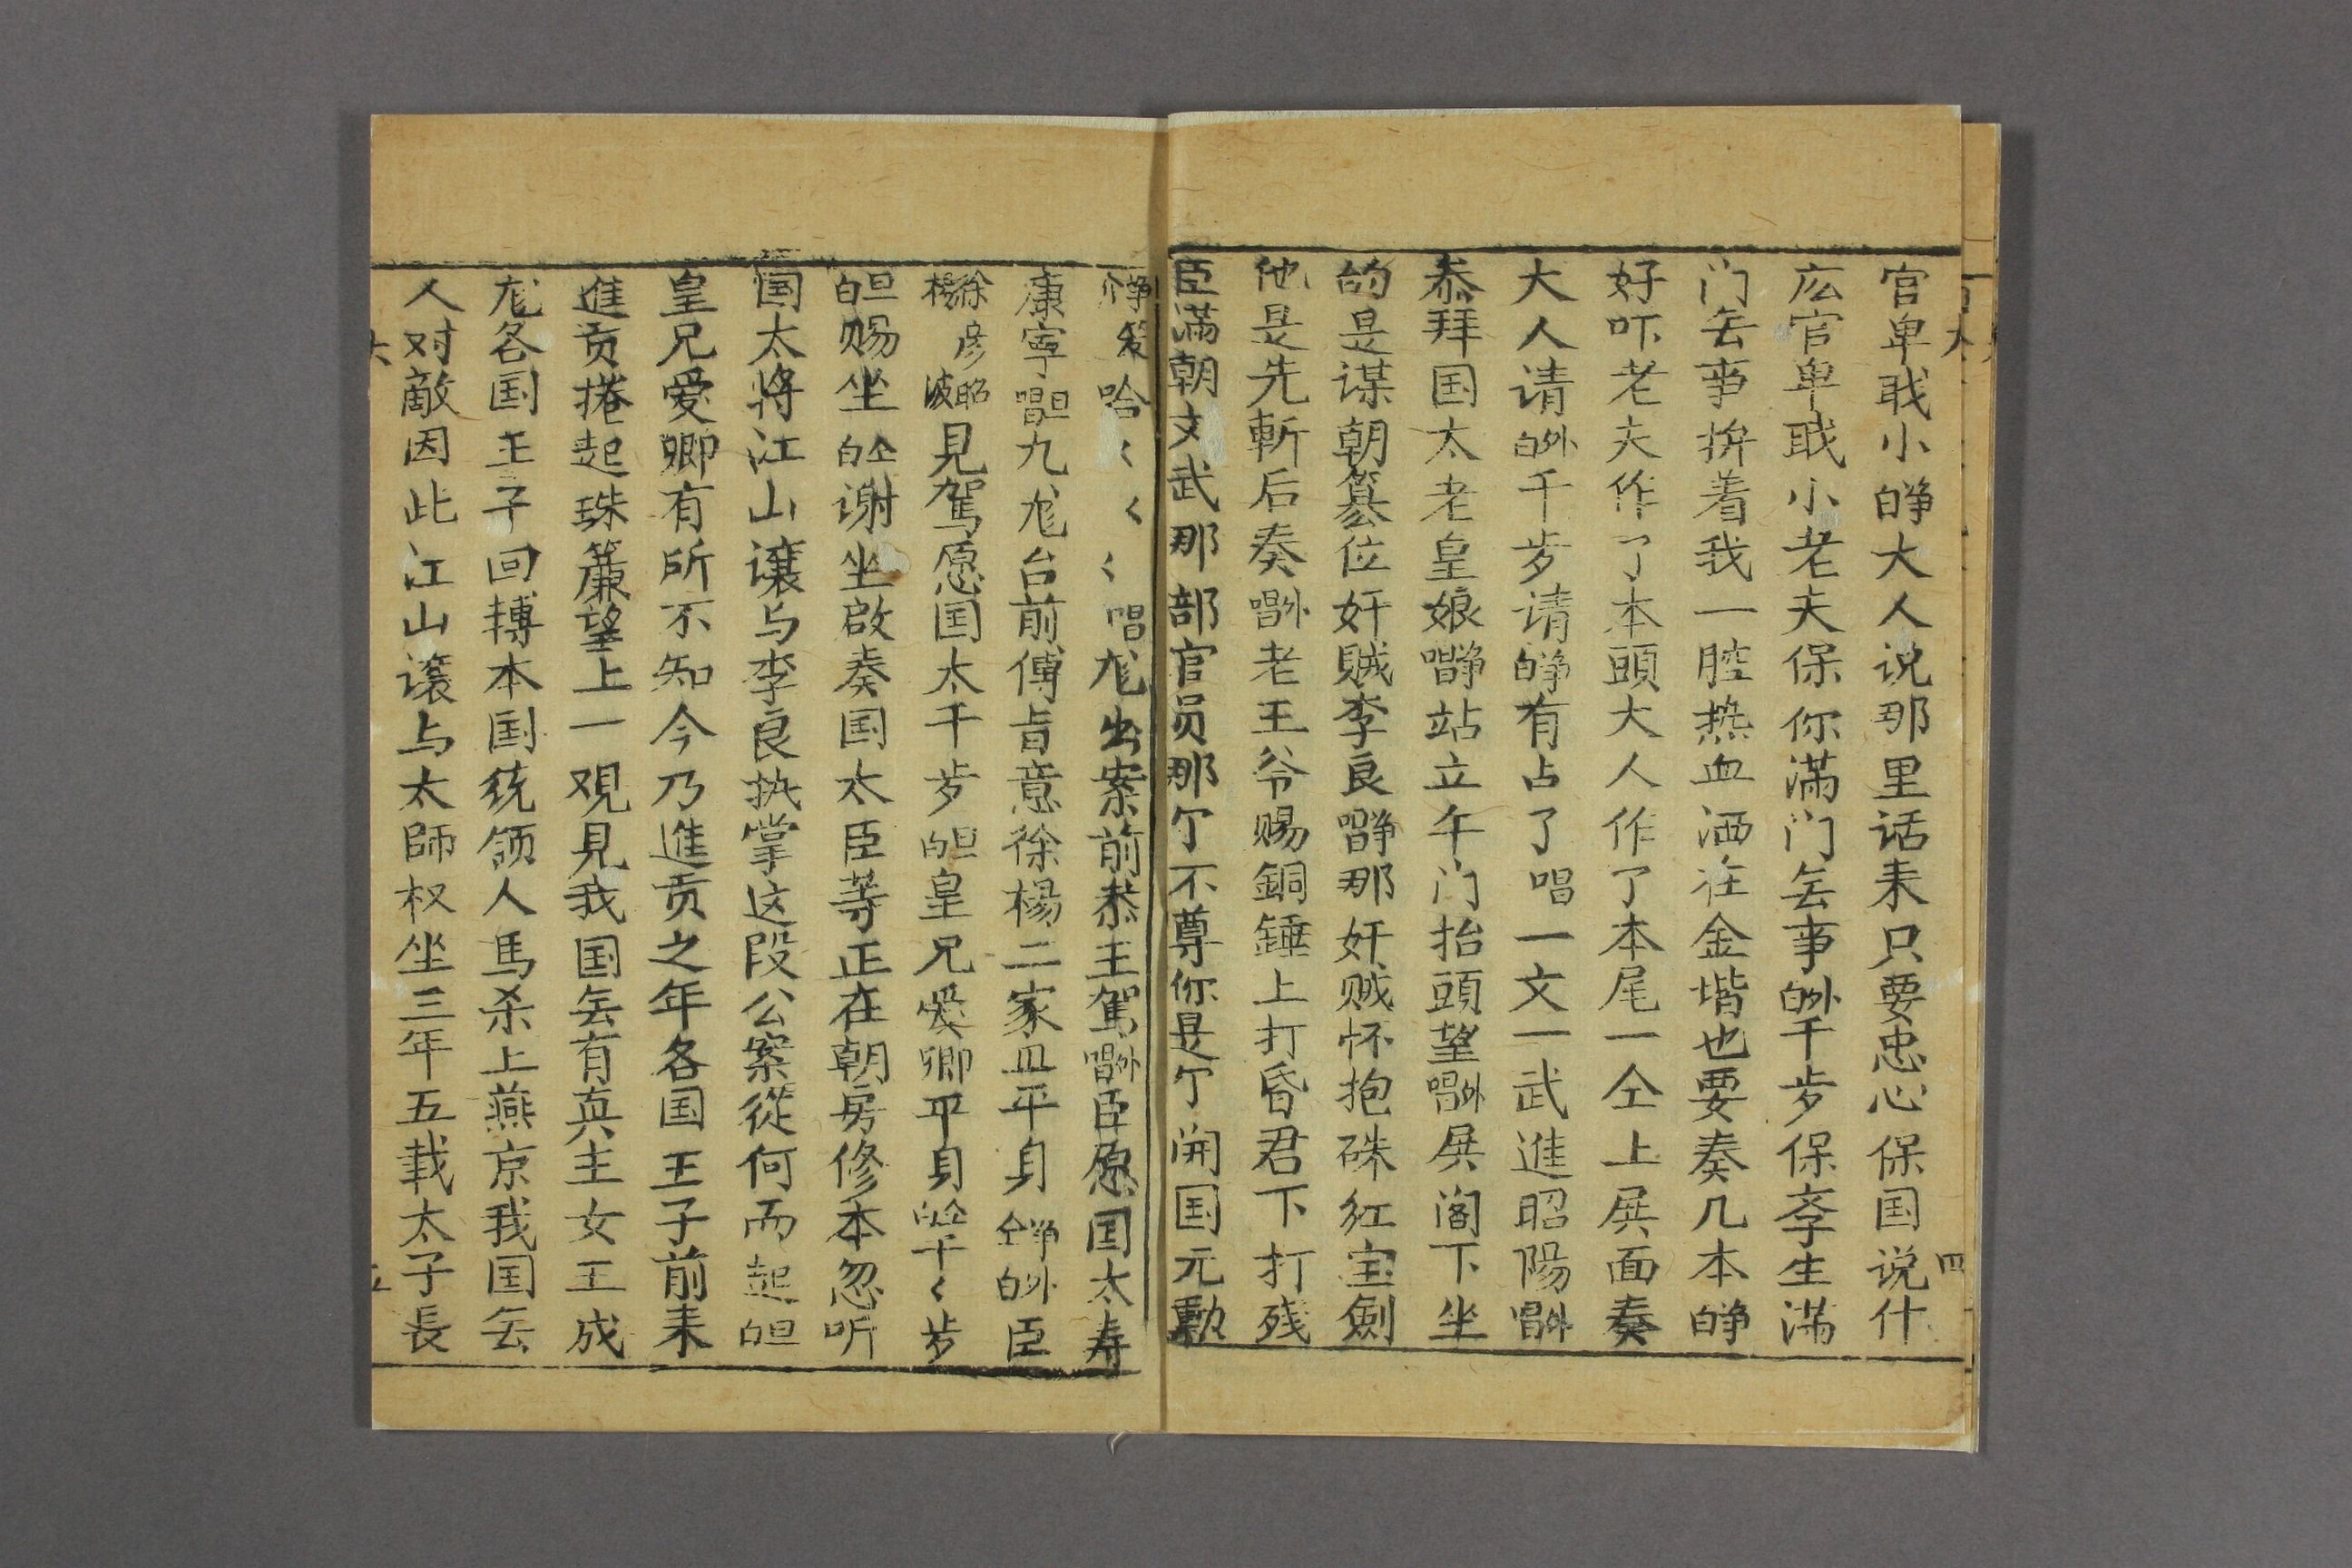 官卑戝小白净大人说那里话来只要忠心保国说什
庅官卑戝小老夫保你满门无事白外千岁保李生满
门无事捹着我一腔热血洒在金堦也要奏几本白净
好吓老夫作了本頭大人作了本尾一仝上展面奏
大人请白外千岁请白净有占了唱一文一武進昭陽唱外
恭拜国太老皇娘唱净站立午门抬頭望唱外展阁下坐
的是谋朝篡位奸贼李良唱净那奸贼怀抱硃红宝劍
他是先斬后奏唱外老王爷赐銅錘上打昏君下打残
臣满朝文武那部官员那亇不尊你是亇開国元勳
净笑哈〻〻〻唱尨出案前恭王駕唱外臣愿国太寿
康寧唱旦九尨台前傅旨意徐楊二家且平身净仝白外臣
徐楊彦昭波見駕愿国太千岁白旦皇兄爱卿平身白仝千〻岁
白旦赐坐白仝谢坐啟奏国太臣等正在朝房修本忽听
国太将江山讓与李良执掌这段公案從何而起白旦
皇兄爱卿有所不知今乃進贡之年各国王子前来
進贡捲起珠簾望上一观見我国无有真主女王成
尨各国王子回轉本国统领人馬杀上燕京我国无
人对敵因此江山讓与太師权坐三年五载太子長